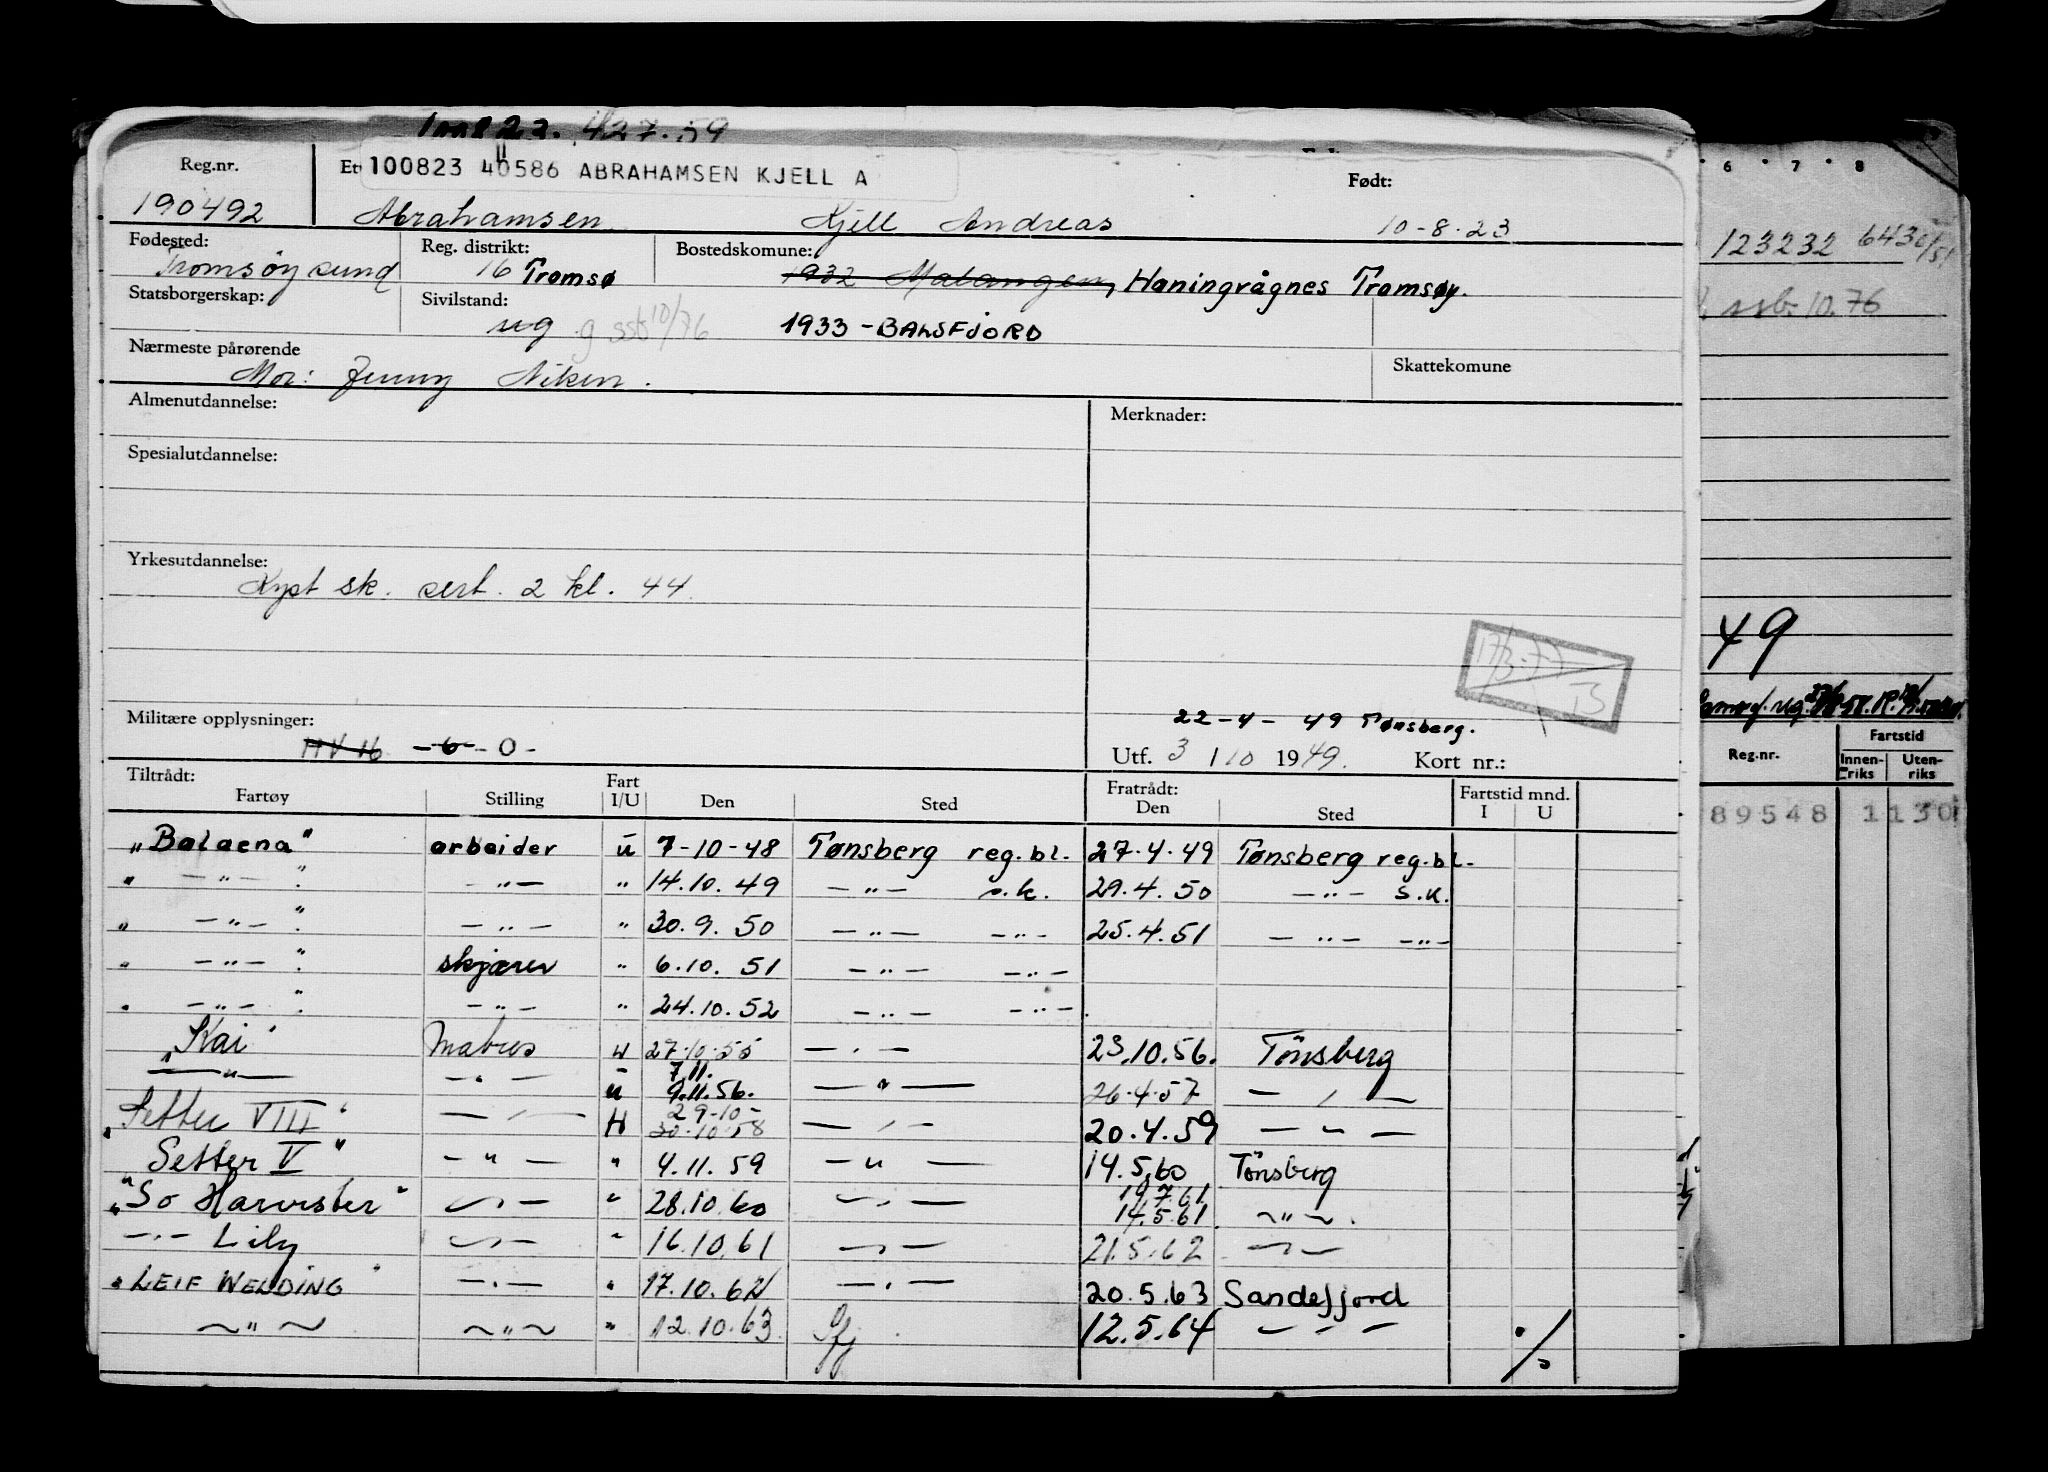 Reg.nr.
Et 100823 40586 ABRAHAMSEN KJELL A
Født:
190492 Abrahamsen Kjell Andreas 10-8-23
Fødested: Reg. distrikt: Bostedskomune:
Tromsøysund 16 Tromsø 1932 Malangen, Haningvågnes Tromsøy.
Statsborgerskap: Sivilstand:
ug g ssb 10/76 1933 - BALSFJORD
Nærmeste pårørende Skattekomune
Mor: Jenny Niken.
Almenutdannelse: Merknader:
Spesialutdannelse:
Yrkesutdannelse:
Kyst sk. sert. 2 kl. 44
17/3-77
Militære opplysninger: 22-4-49 Tønsberg.
HV 16 -6- O - Utf. 3 / 10 1949. Kort nr.:
Tiltrådt: Fart Fratrådt: Fartstid mnd.
Fartøy Stilling I/U Den Sted Den Sted I U
"Balaena" arbeider u 7-10-48 Tønsberg reg.bl. 27.4.49 Tønsberg reg.bl.
" — " — " — " — " 14.10.49 — " — s.k. 29.4.50 — " — s.k.
" — " — " — " — " 30.9.50 — " — — " — 25.4.51 — " — — " —
" — " — " skjærer " 6.10.51 — " — — " —
" — " — " — " — " 24.10.52 — " — — " —
"Kai" Matros u 27.10.55 — " — 23.10.56. Tönsberg
— " — — " — u 7.11. 9.11.56. — " — 26.4.57 — " —
"Setter VIII" — " — H 29-10- 30.10.58 — " — 20.4.59 — " —
Setter V" — " — " 4.11.59 — " — 14.5.60 Tönsberg
"So Harvister" — " — " 28.10.60 — " — 19.7.61 14.5.61 — " —
— " — Lily — " — " 16.10.61 — " — 21.5.62 — " —
" LEIF WELDING" — " — " 17.10.62 — " — 20.5.63 Sandefjord
— " — — " — " 12.10.63 Sfj 12.5.64 — " —
6 . 7 . 8
123232
ssb. 10.76
49
Fartstid
Reg.nr. Innen-riks Uten-riks
89548 1130